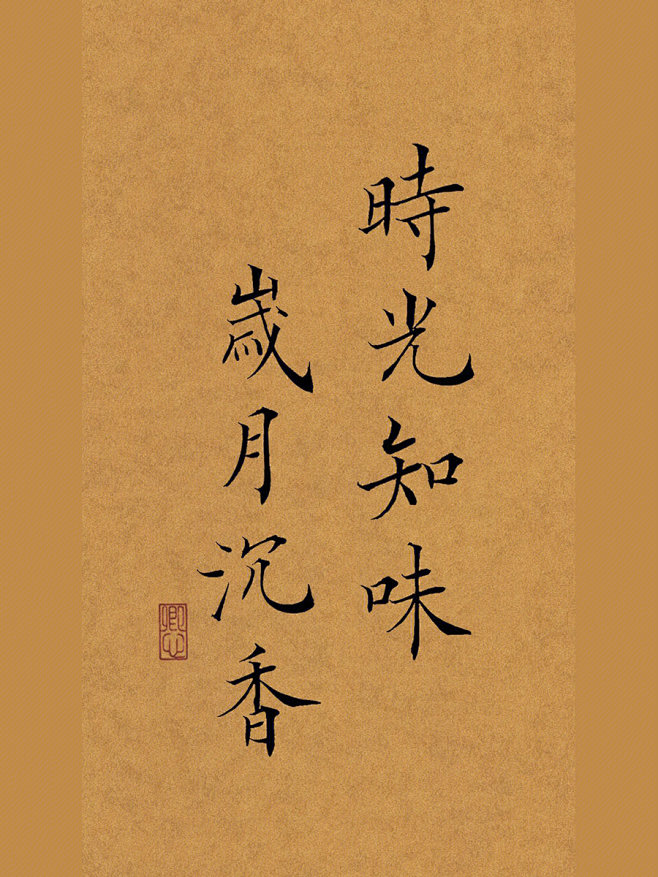 時光知味
歲月沉香
卿心